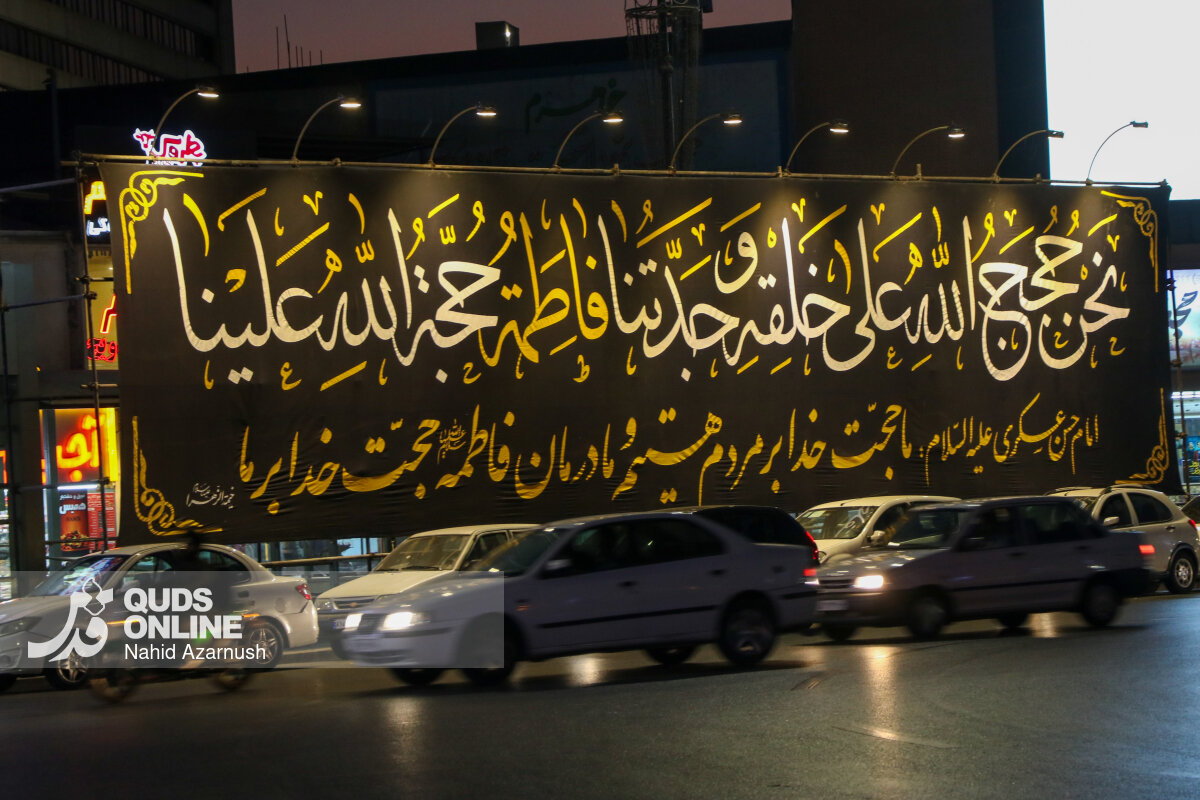 نحن حجج الله علی خلقه و جدّتنا فاطمة حجّة الله علینا
امام حسن عسکری علیه السلام: ما حجت خدا بر مردم هستیم و مادرمان فاطمه حجّت خدا بر ما
QUDS
ONLINE
Nahid Azarnush
قدس